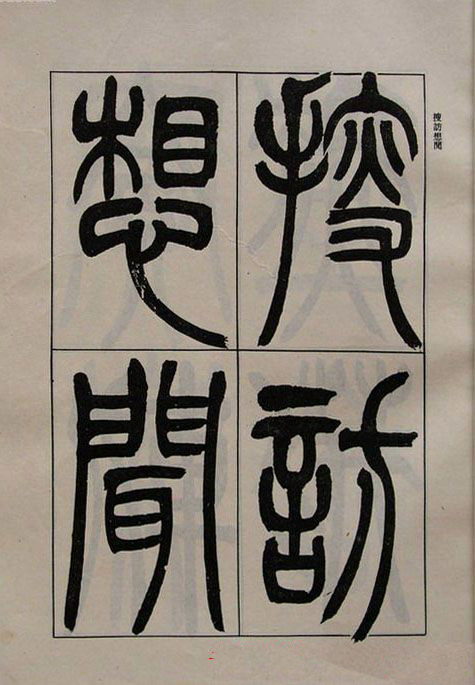 搜訪想聞
搜訪
想聞